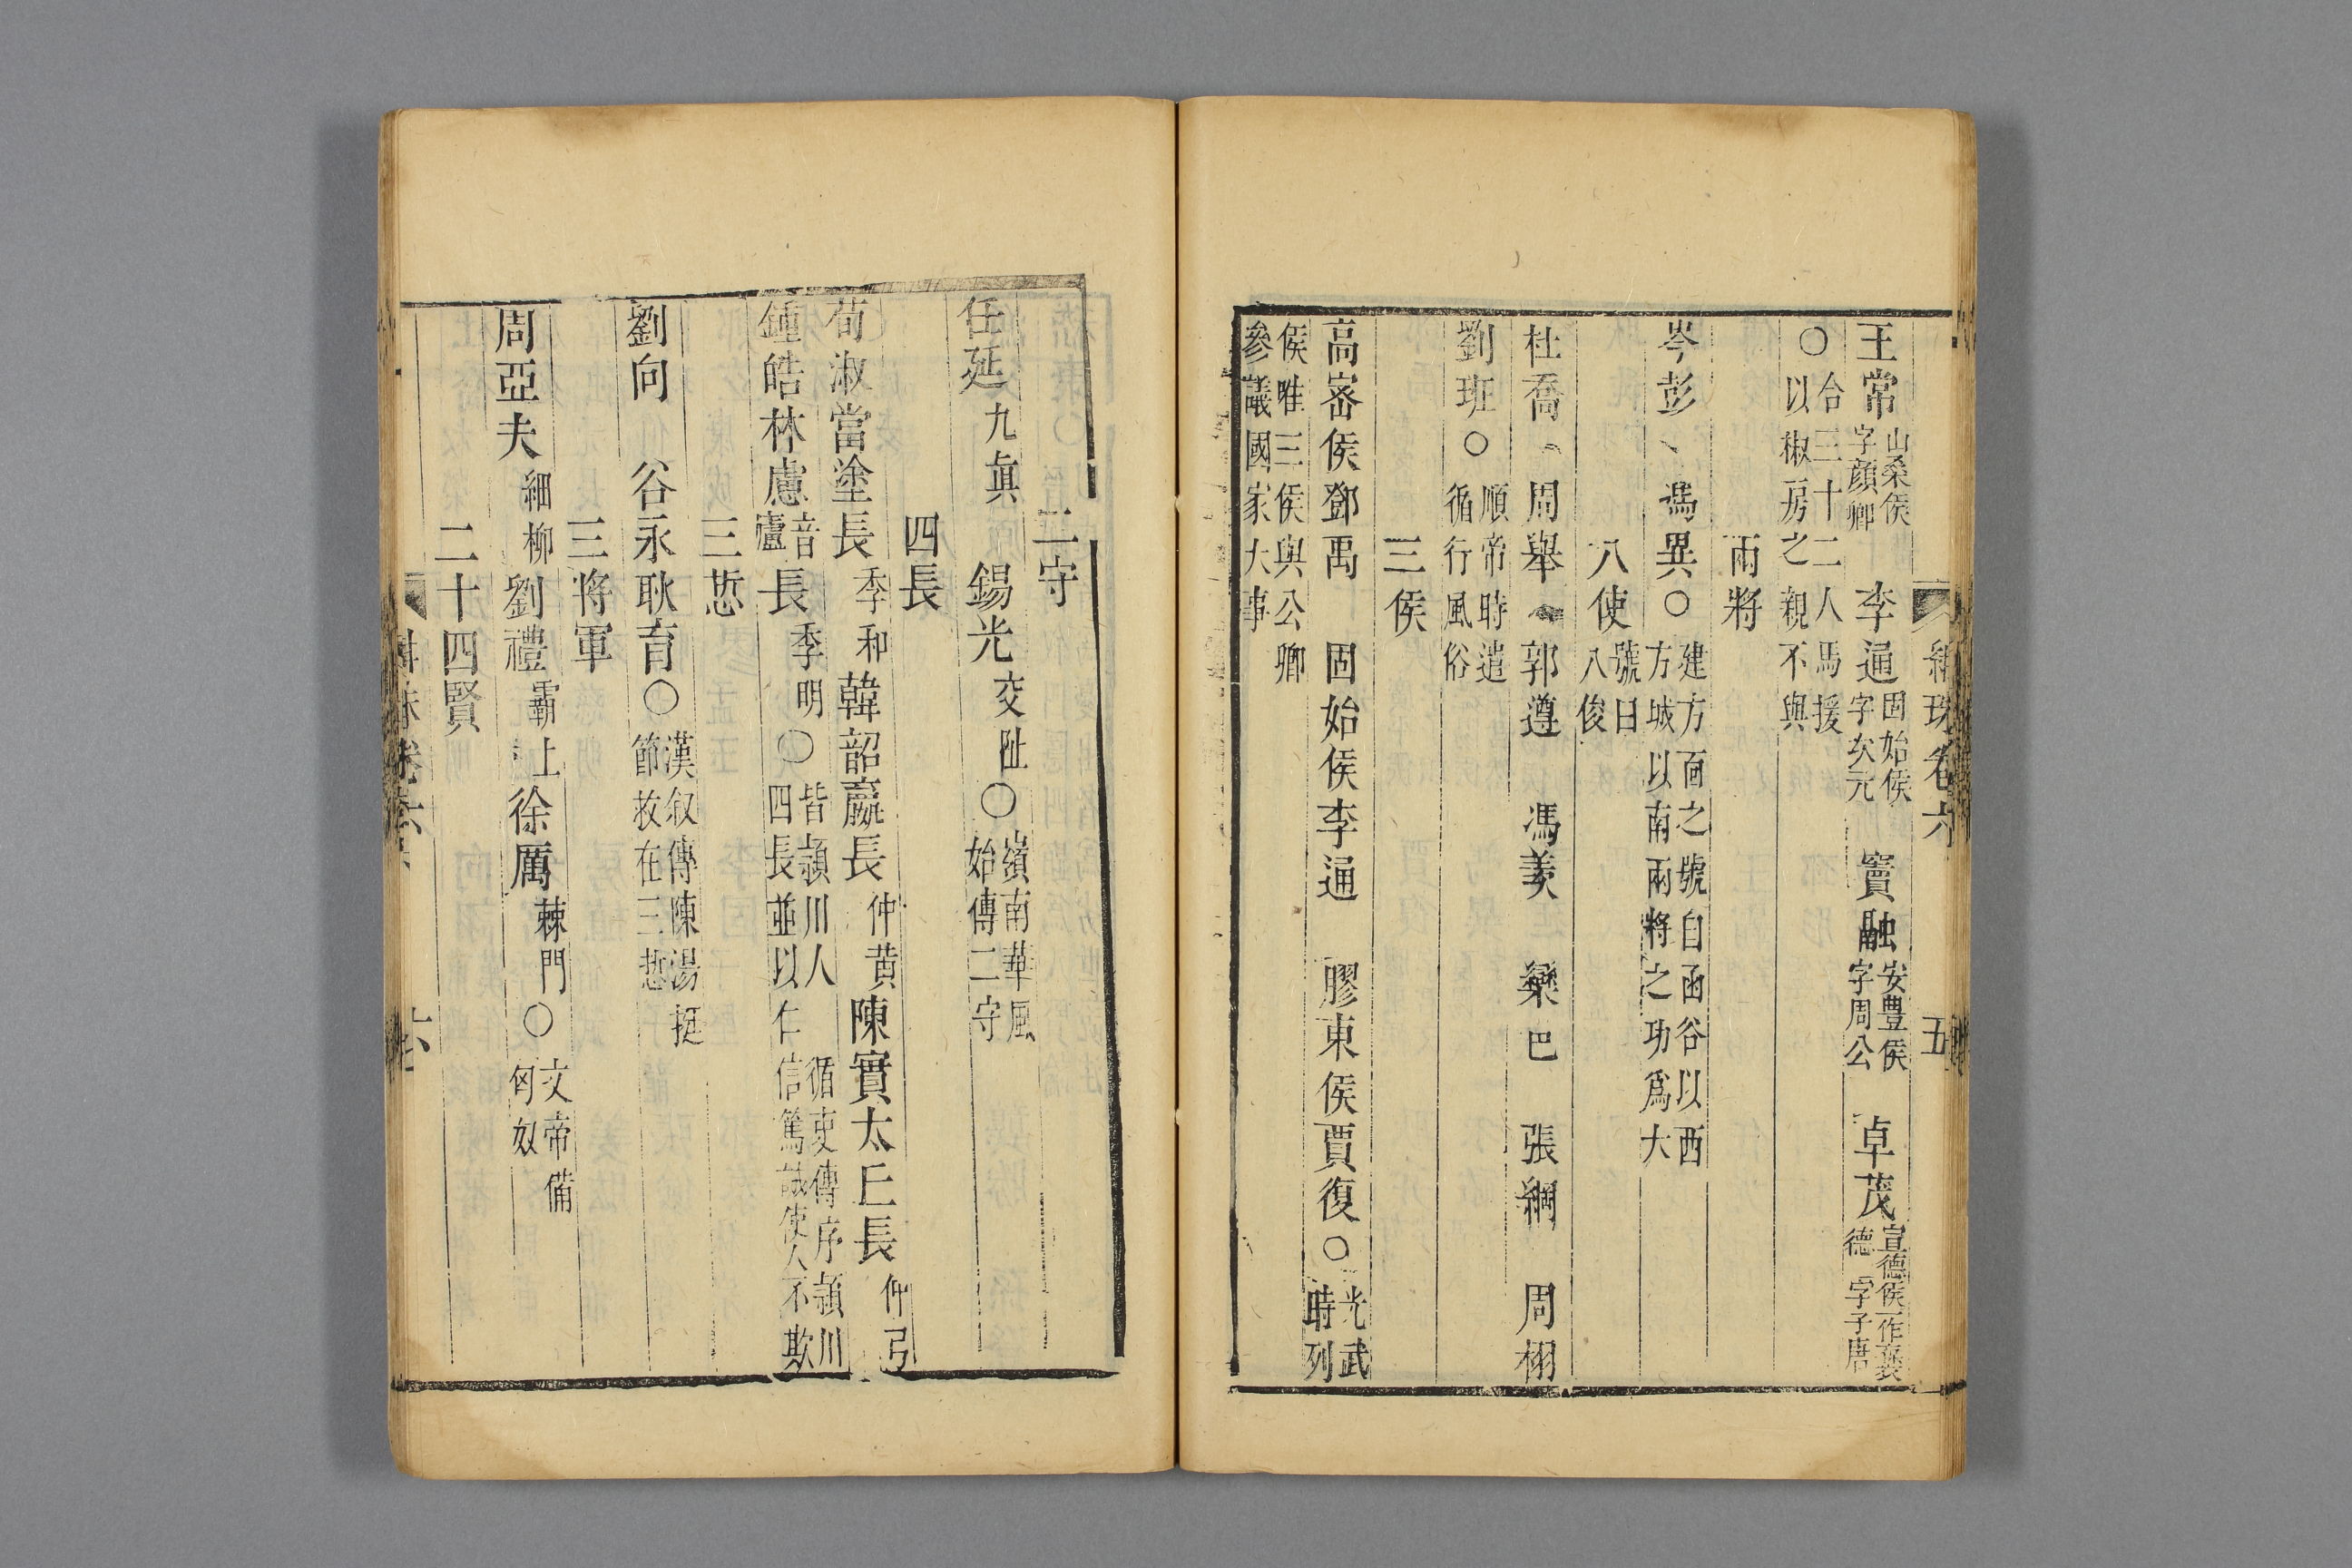 紺珠卷六 五
王常山桑侯字顔卿 李通固始侯字次元 竇融安豊侯字周公 卓茂宣德侯一作褒德 字子唐
○合三十二人馬援以椒房之親不與
兩將
岑彭、馮異○建方面之號自函谷以西方城以南兩將之功爲大
八使號曰八俊
杜喬 周舉 郭遵 馮羡 欒巴 張綱 周栩
劉班○順帝時遣循行風俗
三侯
高密侯鄧禹 固始侯李通 膠東侯賈復○光武時列
侯唯三侯與公卿參議國家大事
二守
任延九眞 錫光交阯○嶺南華風始傳二守
四長
荀淑當塗長季和韓韶嬴長仲黄陳寔太丘長仲弓
鍾皓林慮音廬長季明○皆潁川人四長並以仁信篤誠使人不欺循吏傳序潁川
三悊
劉向 谷永耿育○漢叙傳陳湯挺節救在三悊
三將軍
周亞夫細柳劉禮霸上徐厲棘門○文帝備匈奴
二十四賢
紺珠卷六 六